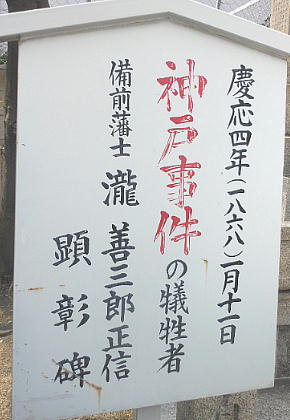 慶応四年(一八六八)二月十一日
神戸事件の犠牲者
備前藩士 瀧善三郎正信
顕彰碑